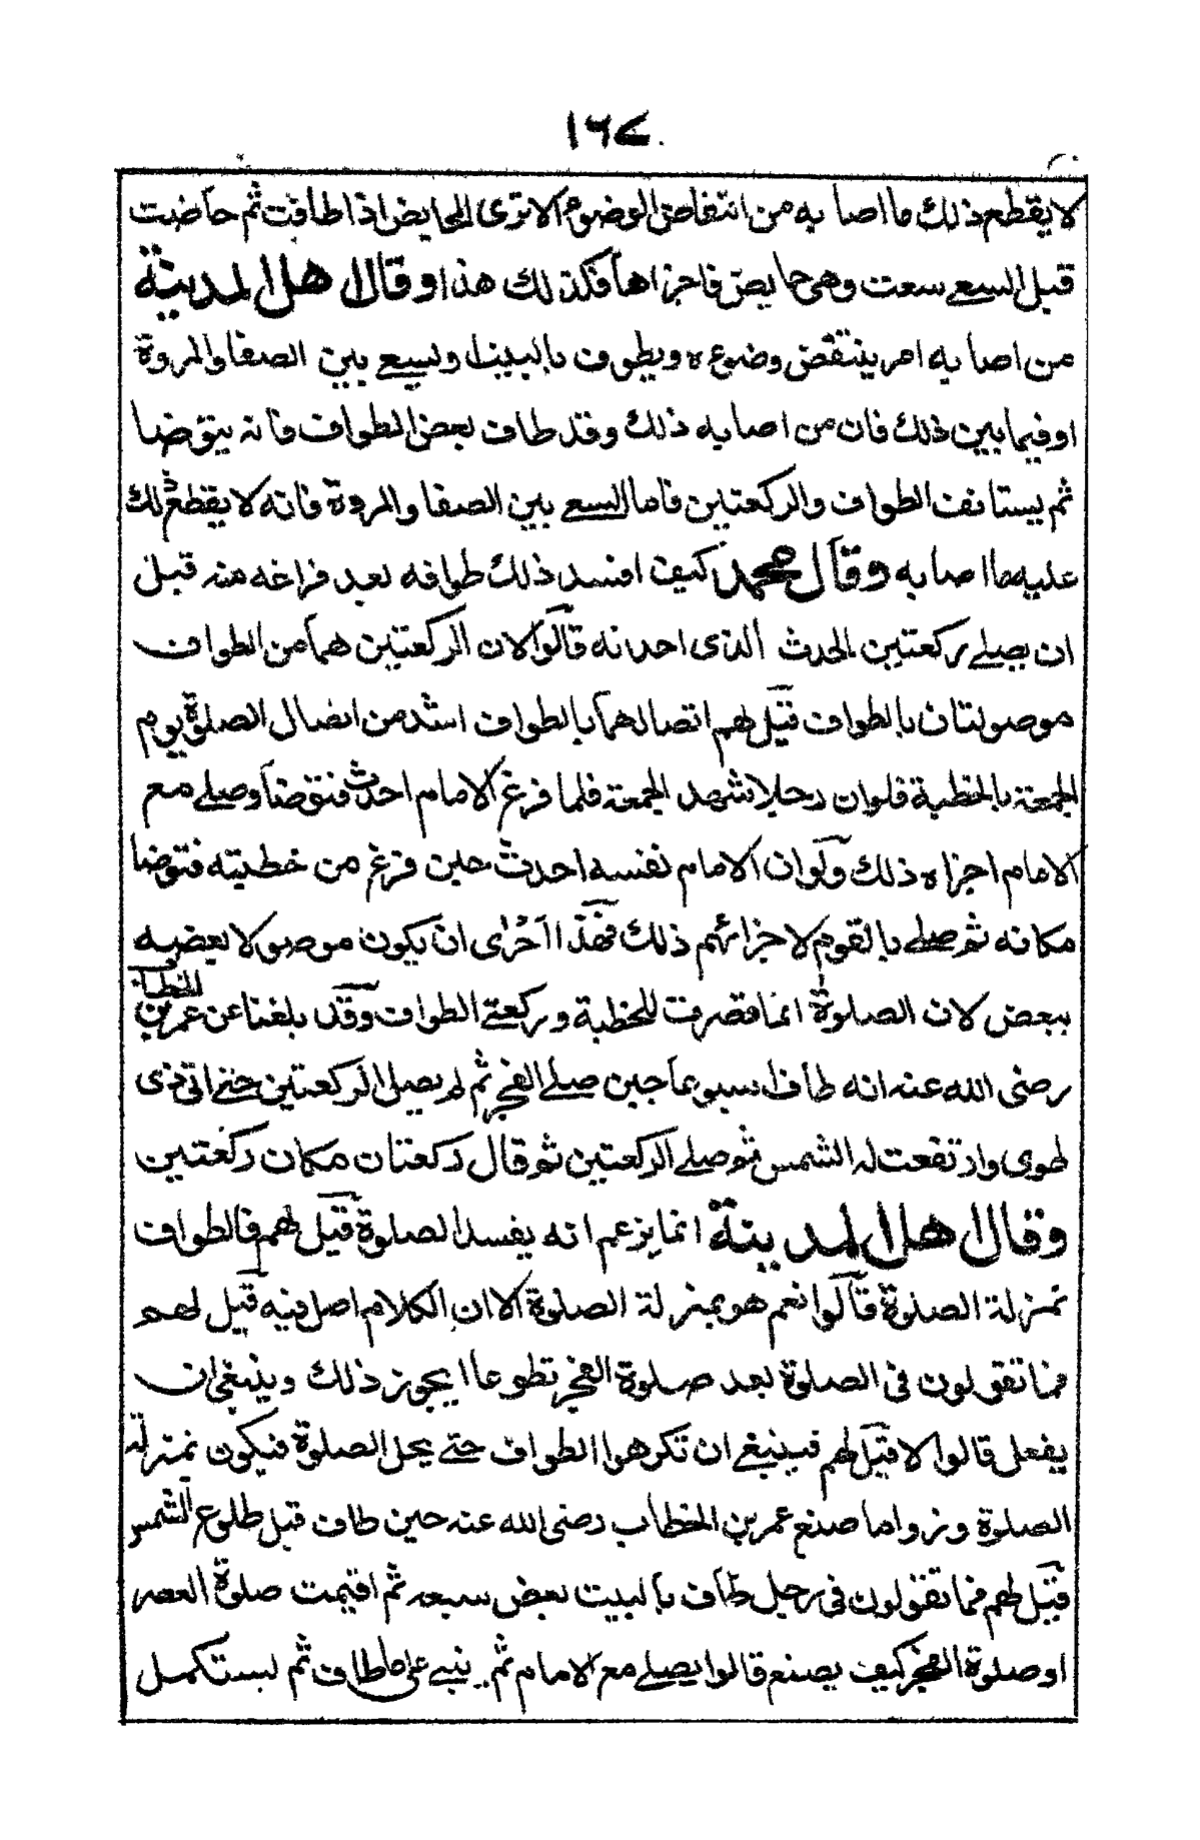 ١٦٧
لا يقطع ذلك ما اصابه من انتقاض الوضوء الا ترى الحايض اذا طافت ثم حاضت
قبل السعي سعت وهي حايض فاجزاها فكذلك هذا وقال اهل المدينة
من اصابه امر ينتقض وضوءه ويطوف بالبيت ويسعى بين الصفا والمروة
او فيما بين ذلك فان من اصابه ذلك وقد طاف بعض الطواف فانه يتوضا
ثم يستانف الطواف والركعتين فاما السعي بين الصفا والمروة فانه لا يقطع ذلك
عليه ما اصابه وقال محمد كيف افسد ذلك طوافه بعد فراغه منه قبل
ان يصلي ركعتين الحدث الذى احدثه قالوا لان الركعتين هما من الطواف
موصولتان بالطواف قيل لهم اتصالهما بالطواف اشد من اتصال الصلوة يوم
الجمعة بالخطبة فلو ان رجلا شهد الجمعة فلما فرغ الامام احدث فتوضا وصلى مع
الامام اجزاه ذلك ولو ان الامام نفسه احدث حين فرغ من خطبته فتوضا
مكانه ثم صلى بالقوم لاجزائهم ذلك فهذا احرى ان يكون موصولا بعضه
ببعض لان الصلوة انما قصرت للخطبة وركعتي الطواف وقد بلغنا عن عمر بن الخطاب
رضى الله عنه انه طاف اسبوعا حين صلى الفجر ثم لم يصلى الركعتين حتى اتى ذى
طوى وارتفعت له الشمس ثم صلى الركعتين ثم قال ركعتان مكان ركعتين
وقال اهل المدينة انما يزعم انه يفسد الصلوة قيل لهم فالطواف
بمنزلة الصلوة قالوا نعم هو بمنزلة الصلوة الا ان الكلام اصل فيه قيل لهم
فما تقولون فى الصلوة بعد صلوة الفجر تطوعا ايجوز ذلك وينبغى ان
يفعل قالوا لا قيل لهم فينبغي ان تكرهوا الطواف حتى يحل الصلوة فيكون بمنزلة
الصلوة ونروا ما صنع عمر بن الخطاب رضى الله عنه حين طاف قبل طلوع الشمس
قيل لهم فما تقولون فى رجل طاف بالبيت بعض سبعه ثم اقيمت صلوة العصر
او صلوة الفجر كيف يصنع قالوا يصلي مع الامام ثم يبني على ما طاف ثم يستكمل